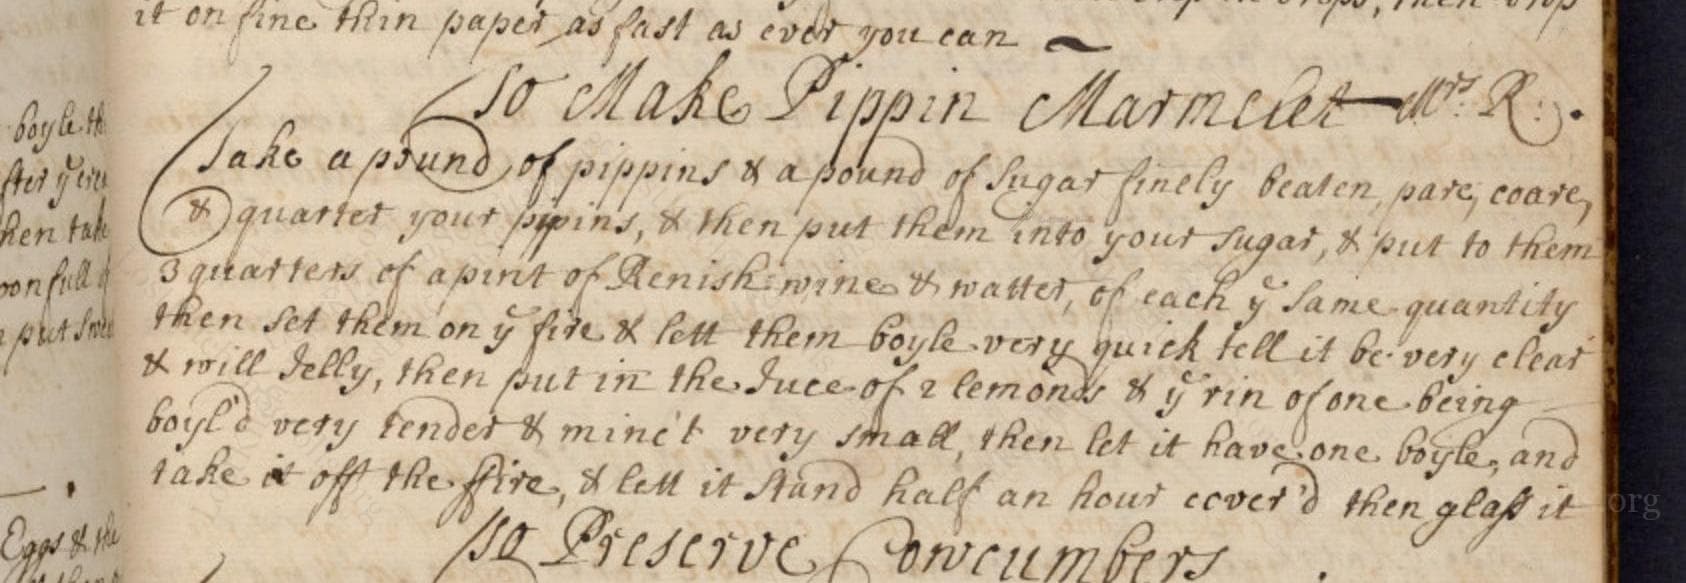 it on fine thin paper as fast as ever you can
To Make Pippin Marmelet Mrs. R:.
Take a pound of pippins & a pound of Sugar finely beaten, pare, coare,
& quarter your pipins, & then put them into your sugar, & put to them
3 quarters of a pint of Renish wine & watter, of each ye same quantity
then set them on ye fire & lett them boyle very quick tell it be very clear
& will Jelly, then put in the Juce of 2 lemonds & ye rin of one being
boyl'd very tender & minc't very small, then let it have one boyle, and
take it off the ffire, & lett it stand half an hour cover'd then glass it
To Preserve Cowcumbers
boyle th
fter ye
hen take
oon full of
put
Eggs & the
org